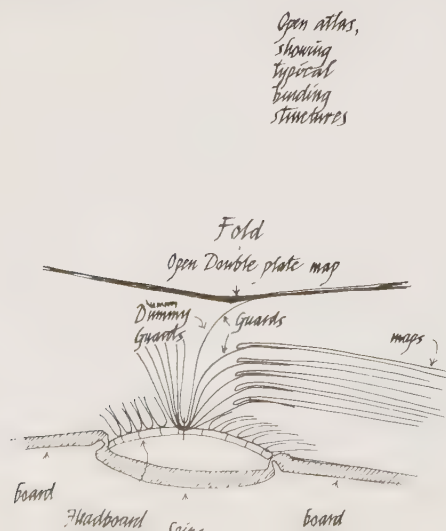 Open atlas,
showing
typical
binding
structures
Fold
Open Double plate map
Dummy
Guards
Guards
maps
board
Headboard
Spine
board